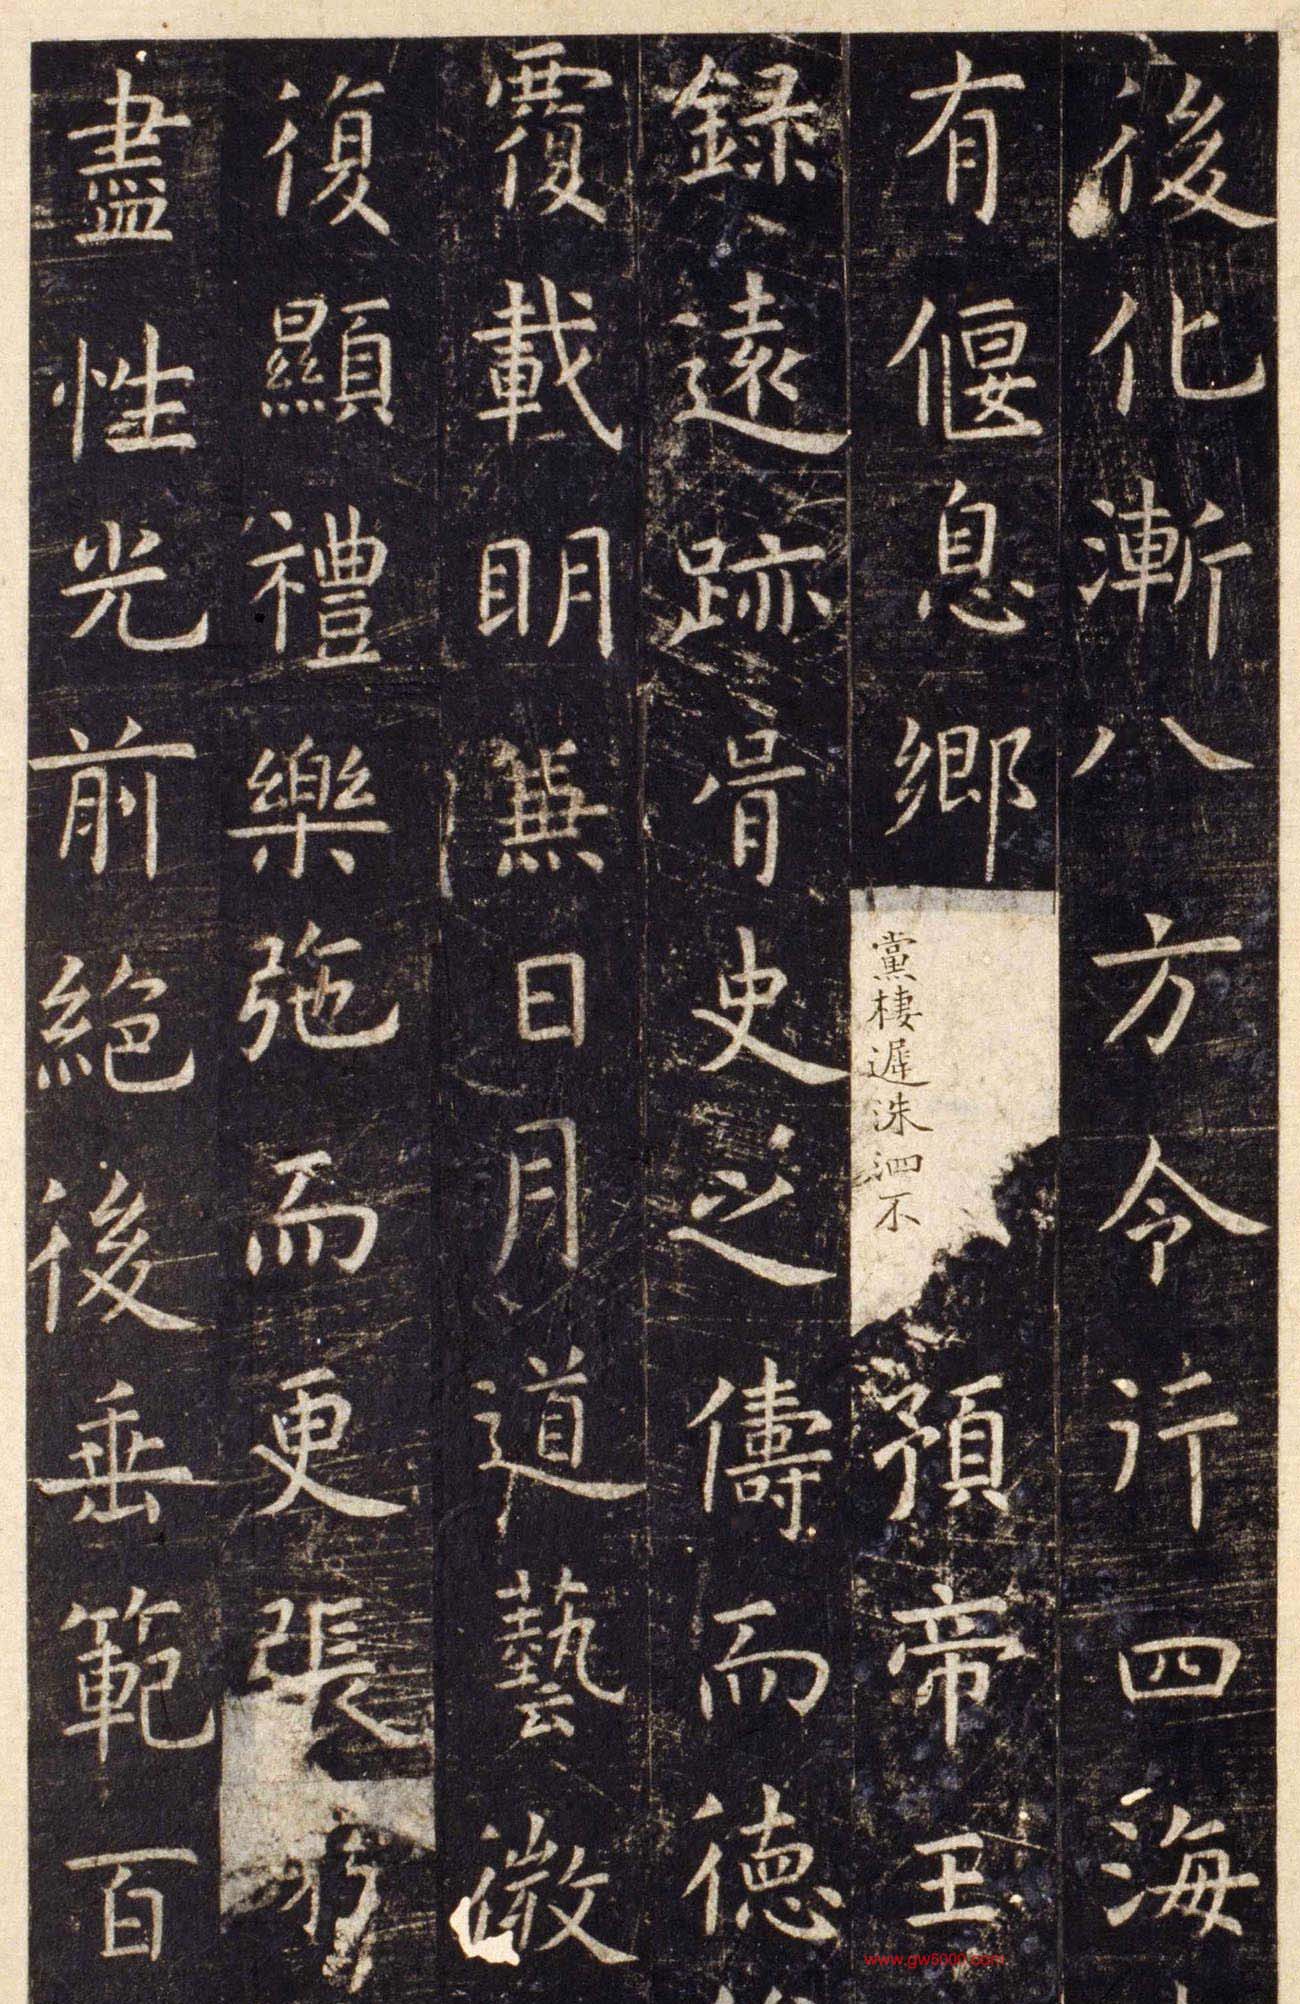 後化漸八方令行四海
有偃息鄉黨棲遲洙泗不預帝王
錄遠跡胥史之儔而德
覆載明兼日月道藝微
復顯禮樂弛而更張窮
盡性光前絕後垂範百
www.gw5000.com